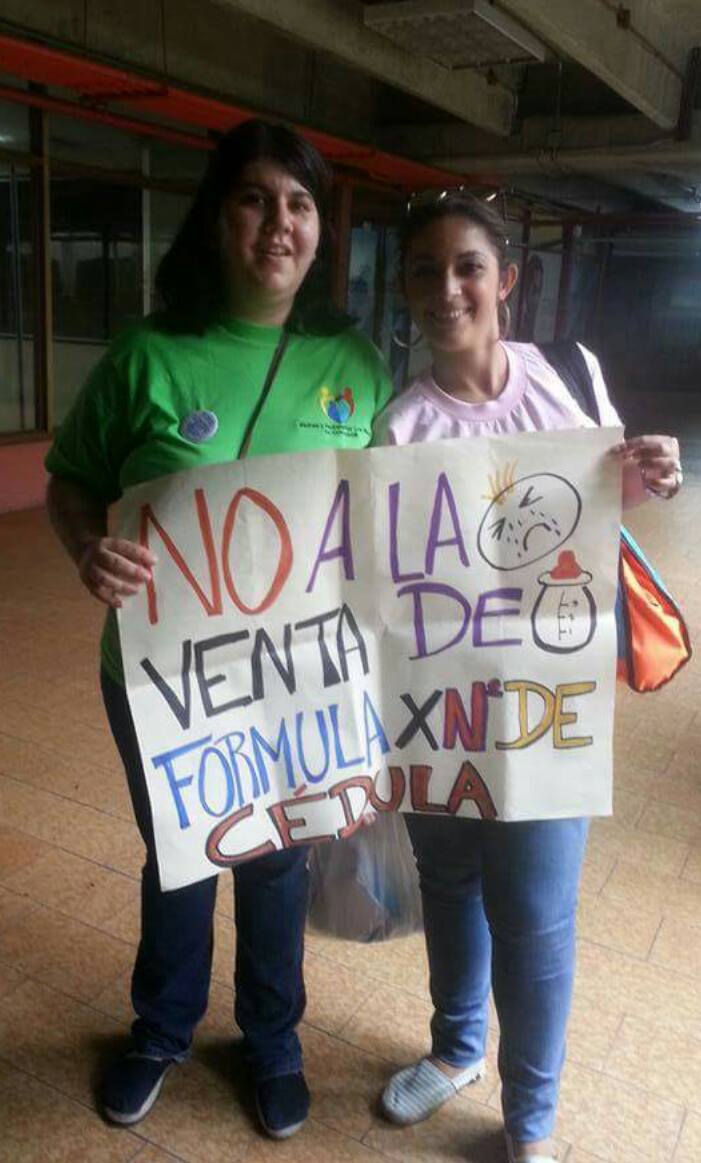 NO A LA
VENTA DE
FÓRMULA X Nº DE
CÉDULA